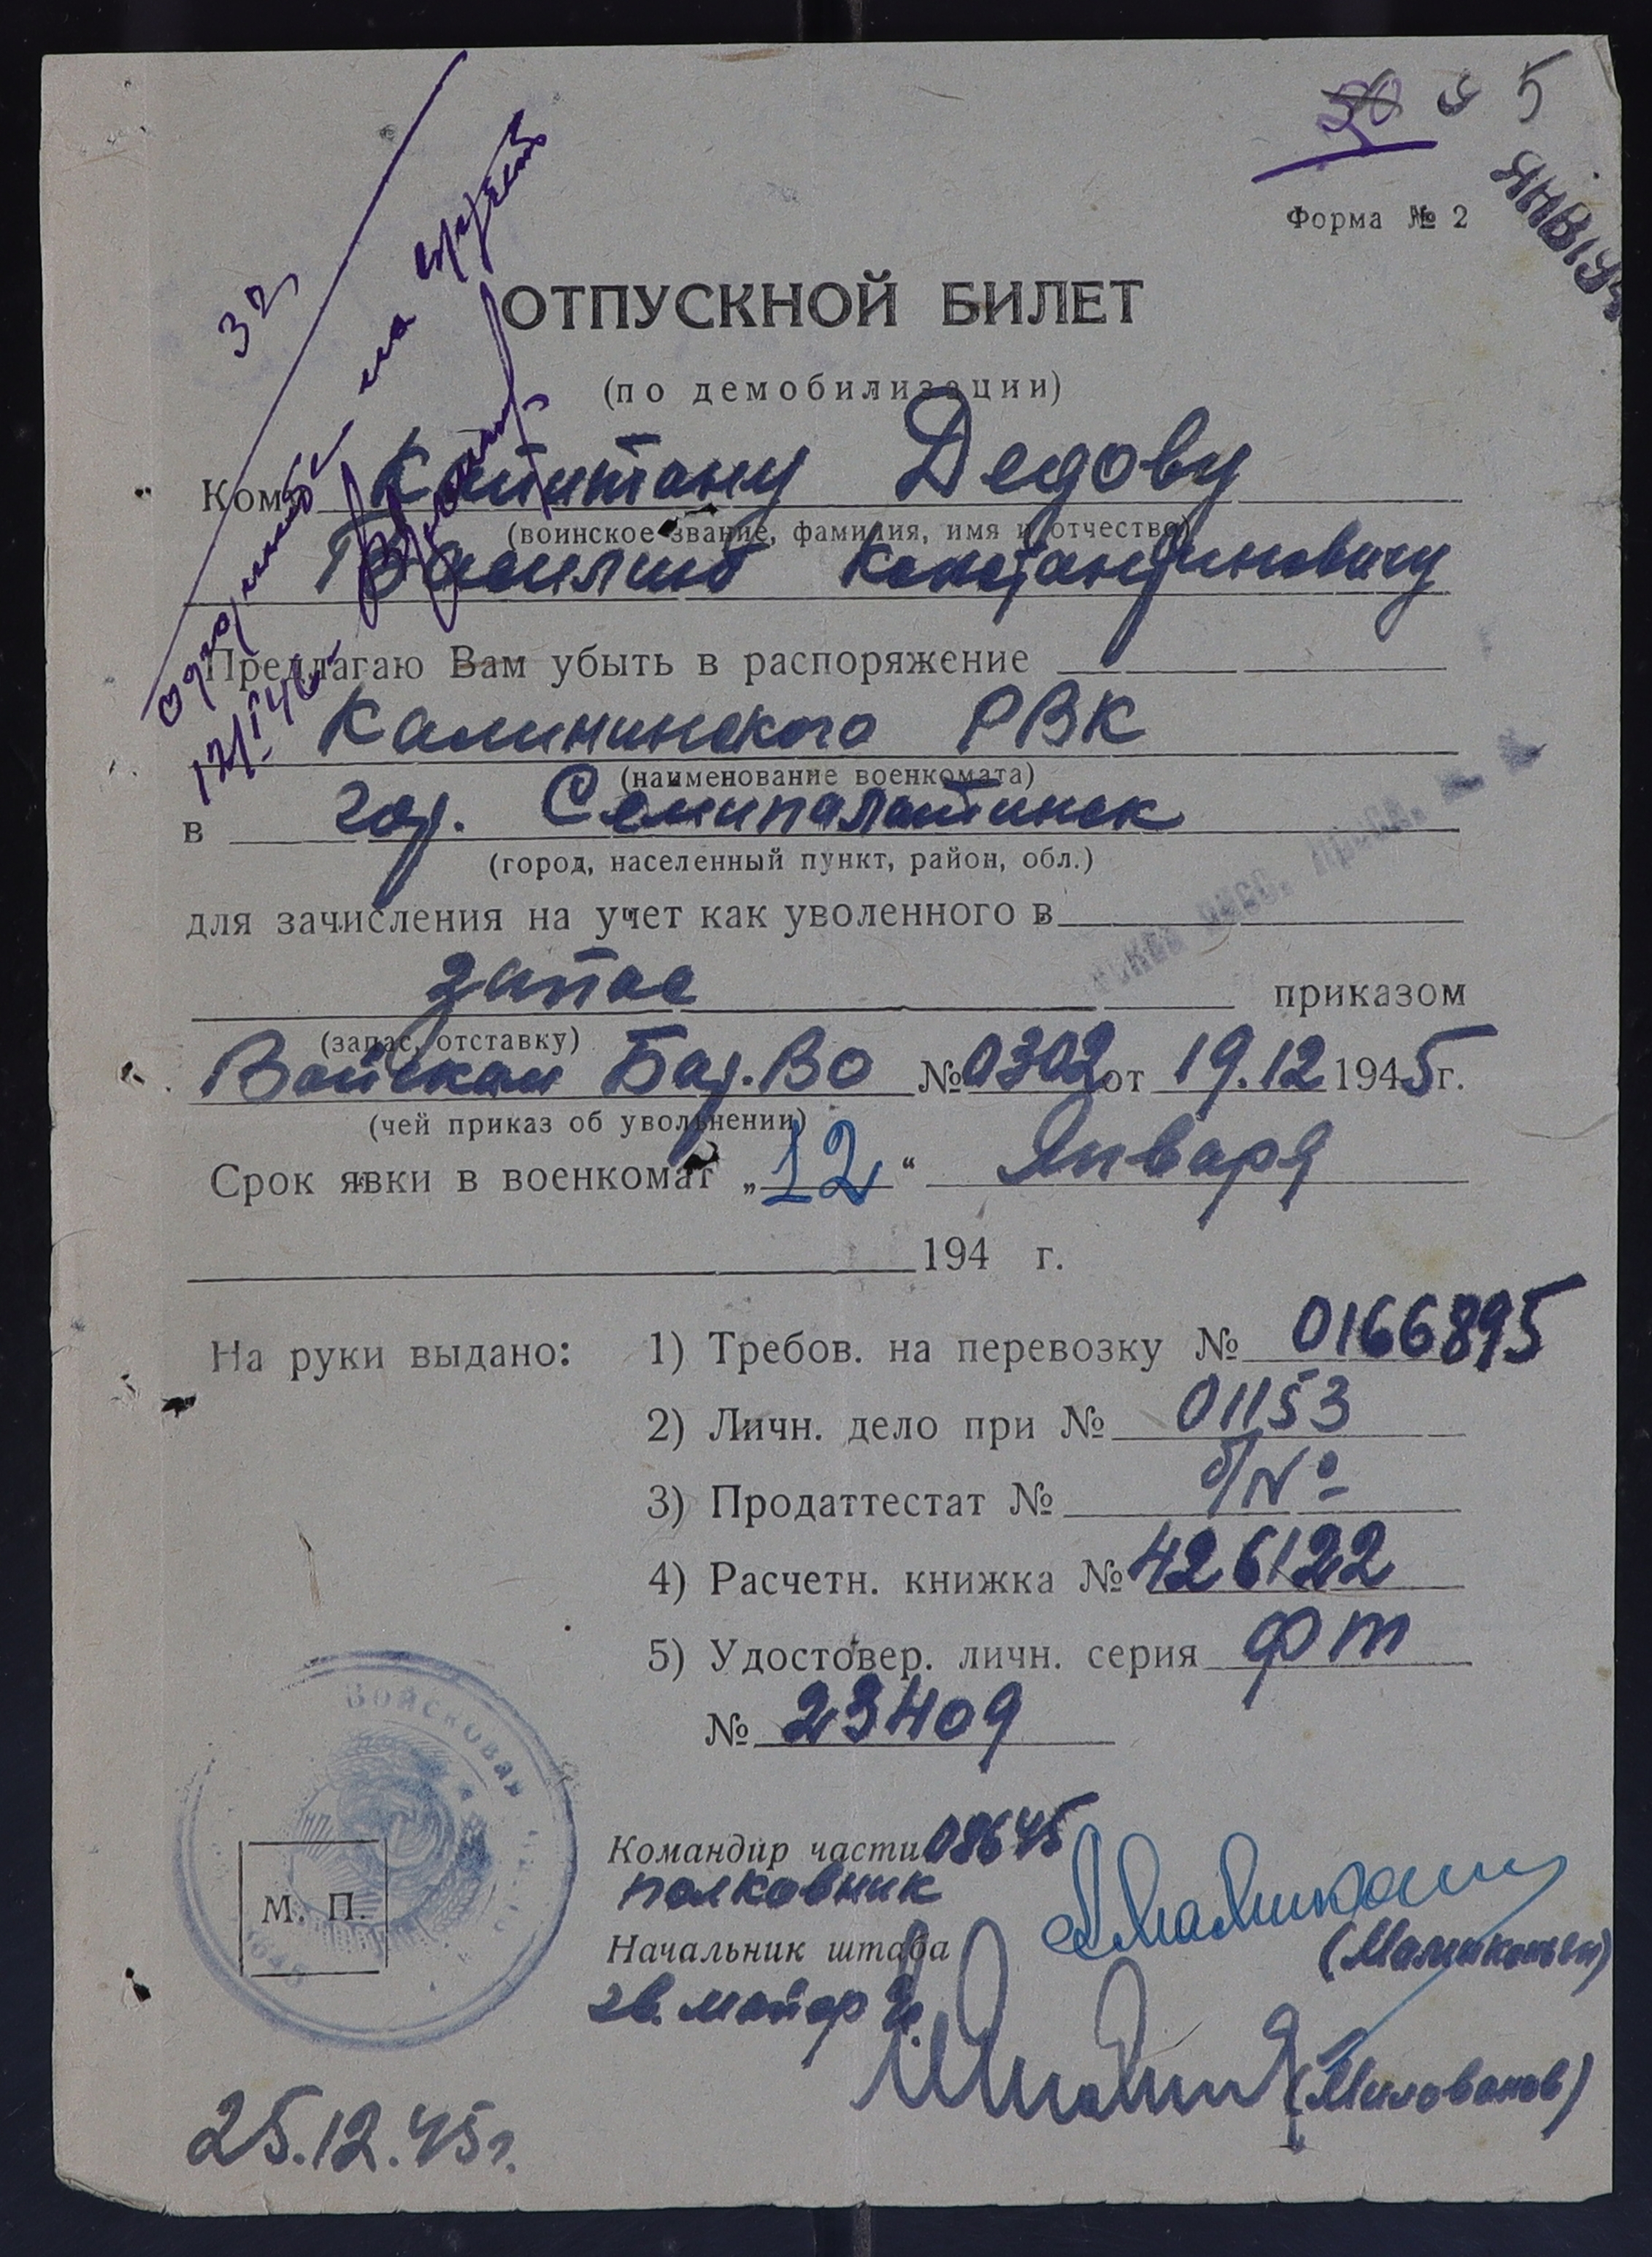 5
Форма № 2
ЯНВ 194
32
на
12/I 46
ОТПУСКНОЙ БИЛЕТ
(по демобилизации)
Кому Капитану Дедову
(воинское звание, фамилия, имя и отчество)
Василию Константиновичу
Предлагаю Вам убыть в распоряжение
Калининского РВК
(наименование военкомата)
в гор. Семипалатинск
(город, населенный пункт, район, обл.)
для зачисления на учет как уволенного в
запас приказом
(запас, отставку)
Войскам Бар.ВО №0302 от 19.12 1945г.
(чей приказ об увольнении)
Срок явки в военкомат „12“ Января
194 г.
На руки выдано: 1) Требов. на перевозку № 0166895
2) Личн. дело при № 01153
3) Продаттестат № б/№
4) Расчетн. книжка № 426122
5) Удостовер. личн. серия ФТ
№ 23409
Войсковая
М. П.
Командир части 08645
полковник
Начальник штаба
гв. майор
(Милованов)
25.12.45г.